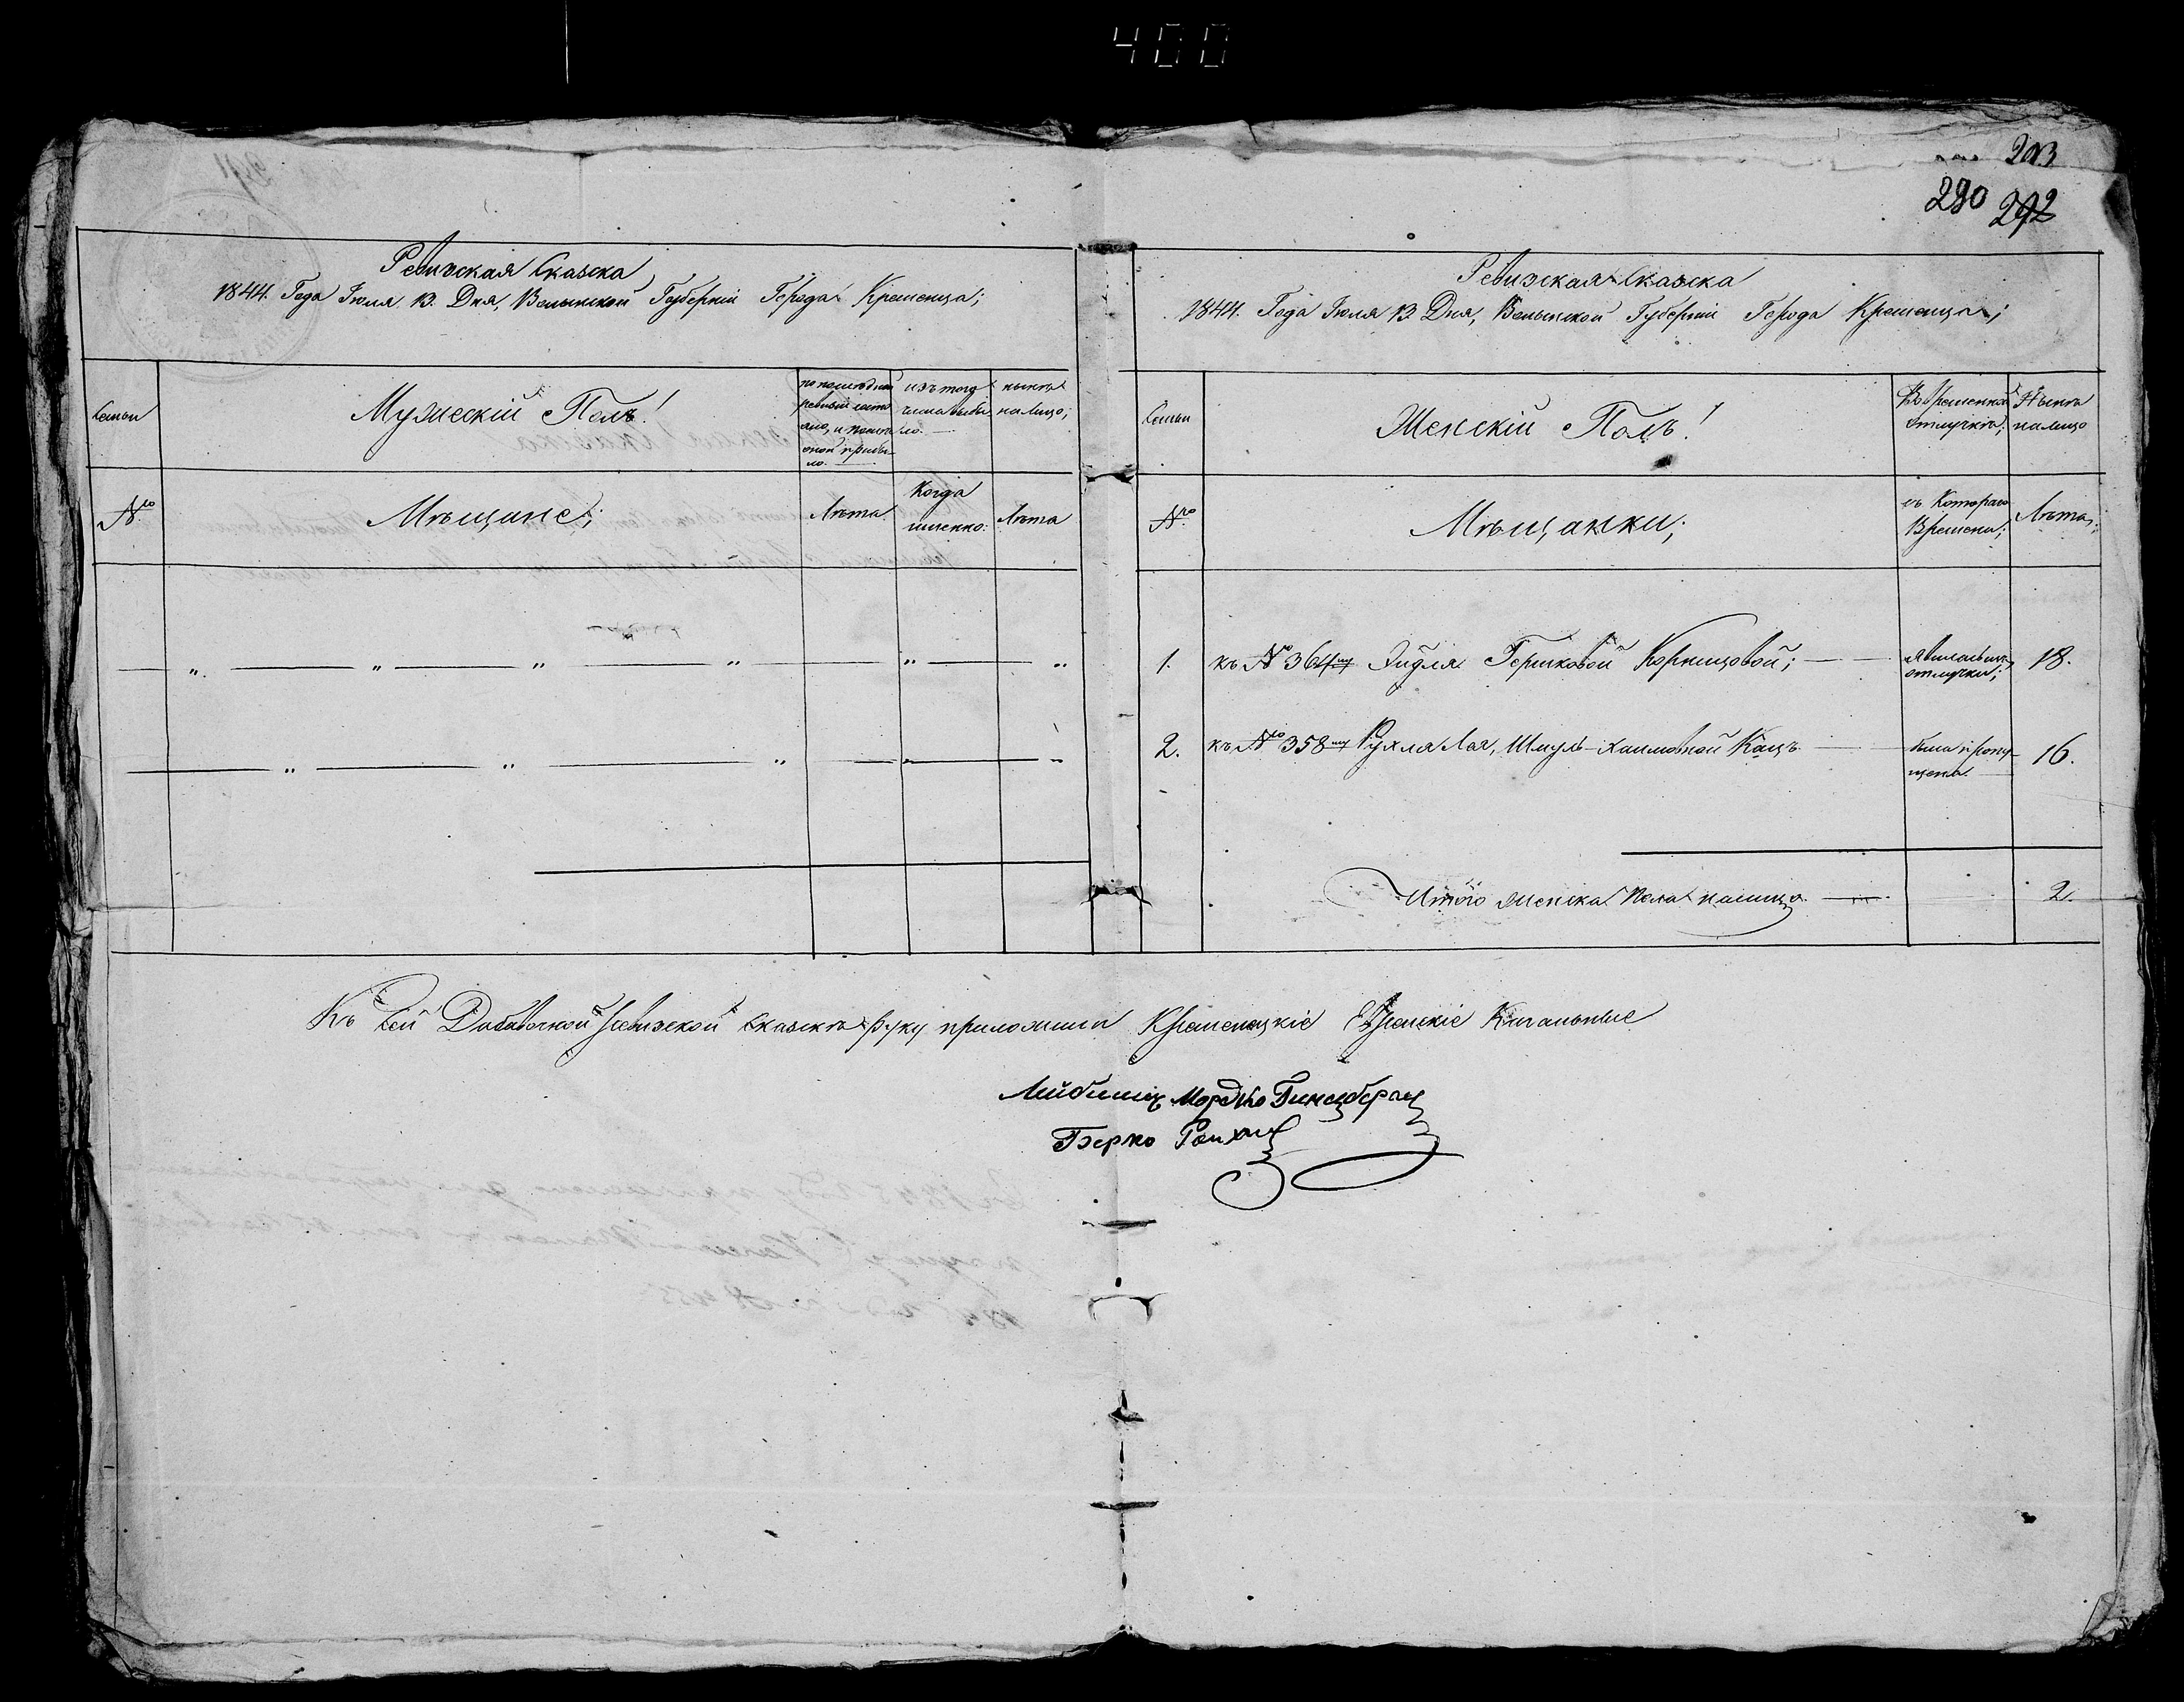 400
203
290 292
Ревизская Сказка
1844. Года Іюля 13. Дня, Волынской Губерніи Города Кременца;
Семьи
Мужескій Полъ!
по последней
ревизіи состо
яло, и после
оной прибы-
ло.
изъ того
числа выбы
ло.
нынѣ
на лицо;
№
Мѣщане;
Лѣта
Когда
именно:
Лѣта
Ревизская Сказка
1844. Года Іюля 13. Дня, Волынской Губерніи Города Кременца;
Семьи
Женскій Полъ!
Во временной
отлучкѣ;
Нынѣ
на лицо
№
Мѣщанки;
съ Котораго
Времени;
Лѣта;
1. къ № 364му Эйдля Гершковой Корницовой; явилась изъ
отлучки; 18.
2. къ № 358му Рухля Лая, Шмуль-Хаимовой Кацъ была пропу-
щена. 16.
Итого женска пола налицо 2.
Къ сей Добавочной Ревизской сказкѣ руку приложили Кременецкіе Еврейскіе Кагальные
Лейбишъ Мордко Гинцбергъ
Берко